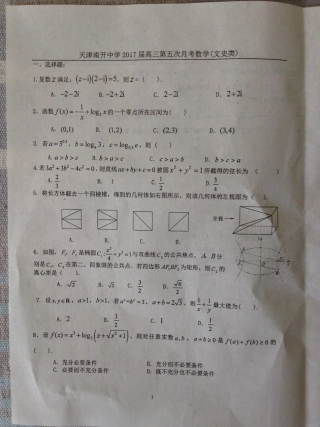 天津南开中学2017届高三第五次月考数学(文史类)
一、选择题:
1.复数z满足: (z-i)(2-i)=5, 则z=( ).
A. -2-2i B. -2+2i C. 2-2i D. 2+2i
2. 函数f(x)=-1/x+log₂x的一个零点所在区间为( )
A. (0,1) B. (1,2) C. (2,3) D. (3,4)
A. a>b>c B. a>c>b C. c>a>b D. b>c>a
4.若3a²+3b²-4c²=0,则直线ax+by+c=0被圆x²+y²=1所截得的弦长为 ( )
A. 2/3 B. 1 C. 1/2 D. 3/4
5. 将长方体截去一个四棱锥, 得到的几何体如右图所示, 则该几何体的左视图为( ).
左视
A. B. C. D.
6. 如图, F₁ F₂是椭圆C₁:x²/4+y²=1与双曲线C₂的公共焦点, A、B分
别是C₁, C₂在第二、四象限的公共点. 若四边形AF₁BF₂为矩形, 则C₂的
离心率是( ).
A. √2 B. √3 C. 3/2 D. √6/2
7. 设x,y∈R, a>1, b>1, 若aˣ=bʸ=3, a+b=2√3, 则1/x+1/y最大值为( ).
A. 2 B. 3/2 C. 1 D. 1/2
8. 设f(x)=x³+log₂(x+√(x²+1)), 则对任意实数a, b, a+b≥0是f(a)+f(b)≥0的
( ).
A. 充分必要条件 B. 充分而不必要条件
C. 必要而不充分条件 D. 既不充分也不必要条件
1